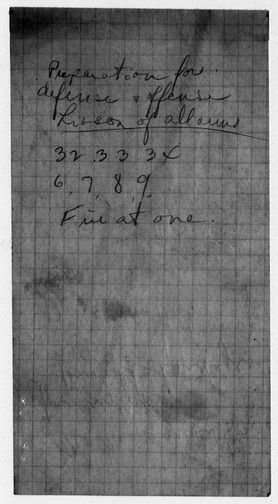 Preparation for
defense & offense
Liason of all arms
32 33 34
6, 7, 8, 9,
Fire at one.